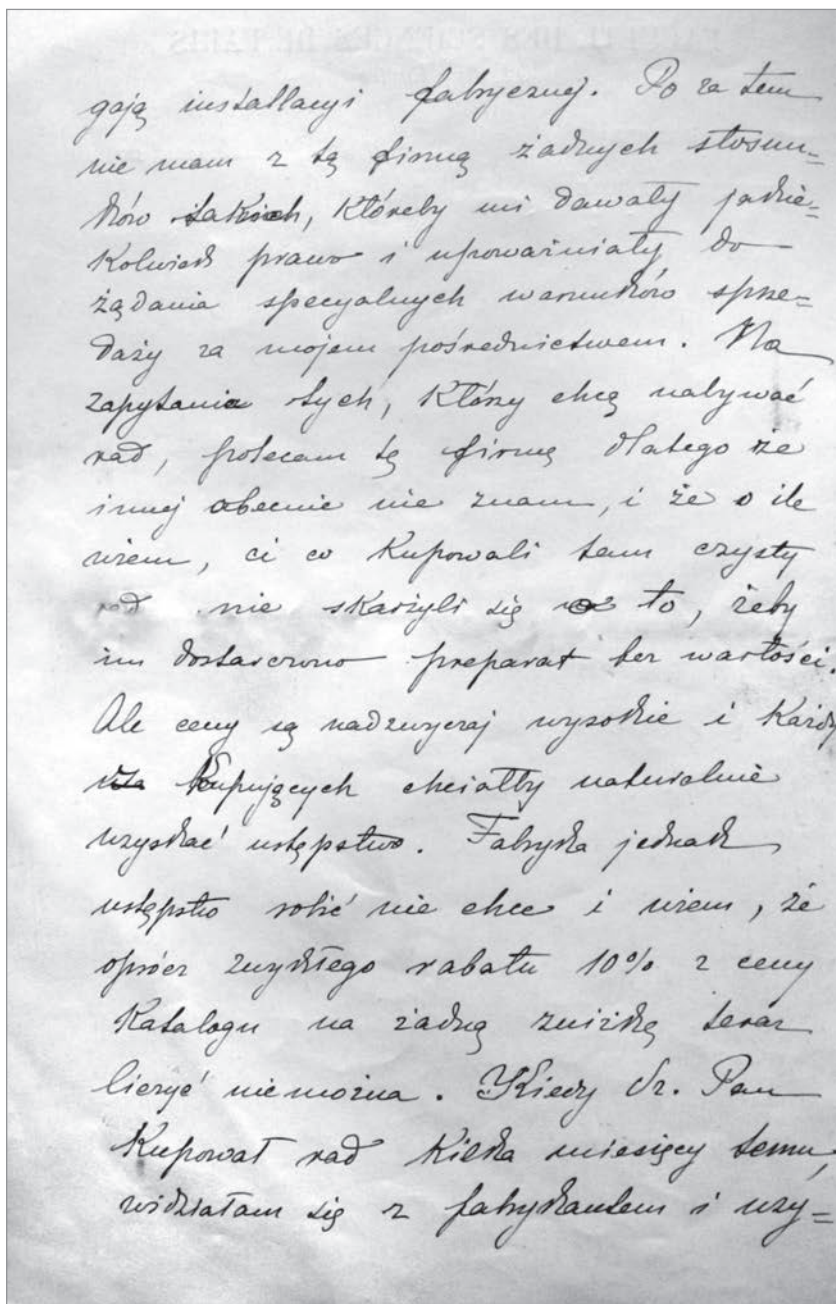 gają installacyi fabrycznej. Po za tem
nie mam z tą firmą żadnych stosun=
ków takich, któreby mi dawały jakie=
kolwiek prawo i upoważniały do
żądania specyalnych warunków sprze=
daży za mojem pośrednictwem. Na
zapytania tych, którzy chcą nabywać
rad, polecam tę firmę dlatego że
innej obecnie nie znam, i że o ile
wiem, ci co kupowali tam czysty
rad nie skarżyli się na to, żeby
im dostarczono preparat bez wartości.
Ale ceny są nadzwyczaj wysokie i każdy
z kupujących chciałby naturalnie
uzyskać ustępstwo. Fabryka jednak
ustępstw robić nie chce i wiem, że
oprócz zwykłego rabatu 10% z ceny
katalogu na żadną zniżkę teraz
liczyć nie można. Kiedy Sz. Pan
kupował rad kilka miesięcy temu,
widziałam się z fabrykantem i uzy=